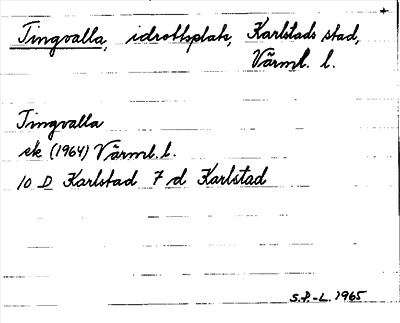 Tingvalla, idrottsplats, Karlstads stad,
Värml. l.
Tingvalla
ek (1964) Värml. l.
10 D Karlstad 7 d Karlstad
S.P.-L. 1965